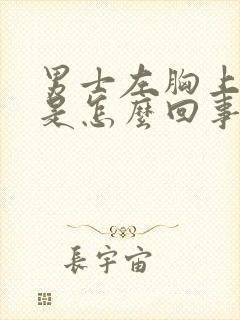 男士左胸上
是怎麼回事
長宇宙